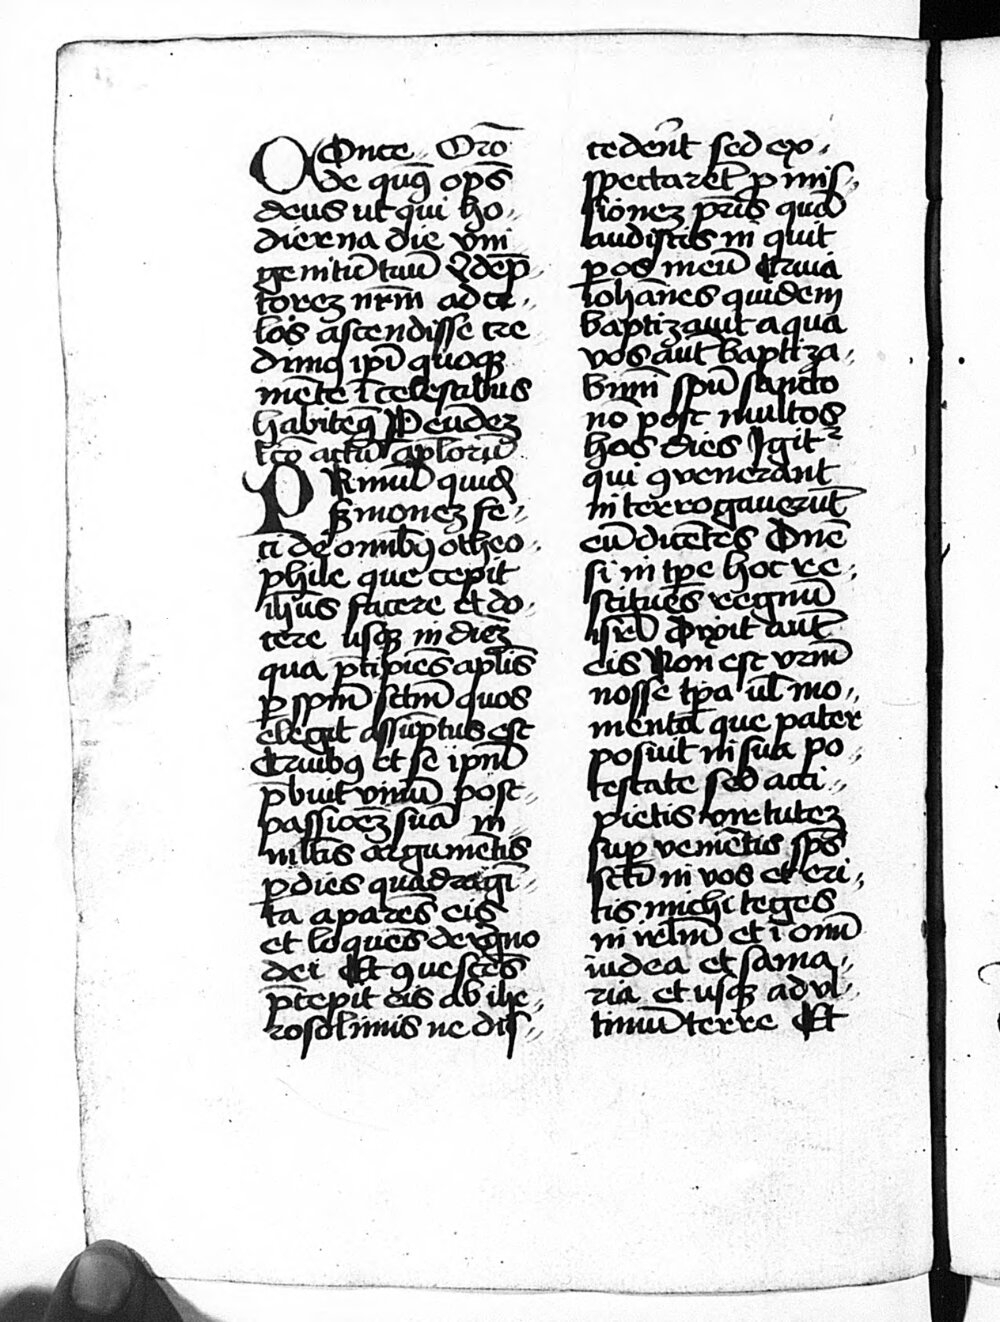 COnce Orō
de qus̄ ops̄
deus ut qui ho⸗
dierna die vni
genitū tuū Rdēp⸗
torez nrm̄ ad ce⸗
los ascendisse cre
dimꝰ ipī quoqꝫ
mēte ī celestibus
habitemꝰ P eūdez
lcō actuū aplorū
PRimū quidē
sermonez fe⸗
ci de omībꝰ o theo⸗
phile que cepit
ihūs facere et do⸗
cere usqꝫ in diez
qua p̄cipiēs aplīs
p spm̄ sctm̄ quos
elegit assūptus est
Quibꝰ et se ipm̄
p̄buit viuū post⸗
passioēz suā in
mltīs argumētis
p dies quadragī⸗
ta aparēs eis
et loquēs de regno
dei Et ꝯuescēs
p̄cepit eis ab ihe⸗
rosolimis ne dis⸗
cederēt sed ex⸗
spectarēt p mis⸗
sionez pr̄is quā
audistis in quit
p os meū Quia
iohānes quidem
baptizauit aqua
vos aut̄ baptiza⸗
bimī spū sancto
nō post multos
hos dies Igitᷣ
qui ꝯvenerant
interrogauerūt
eū dicētes Dnē
si in tpe hoc re⸗
stitues regnū
isrl̄ Dixit aut̄
eis Non est vrm̄
nosse tpa ul̄ mo⸗
menta que pater
posuit in sua po⸗
testate sed acci⸗
pietis virtutez
sup venietis sps̄
sctī in vos et eri⸗
tis michi teges
in irlm̄ et ī omī
iudea et sama⸗
ria et usqꝫ ad vl⸗
timū terre Et